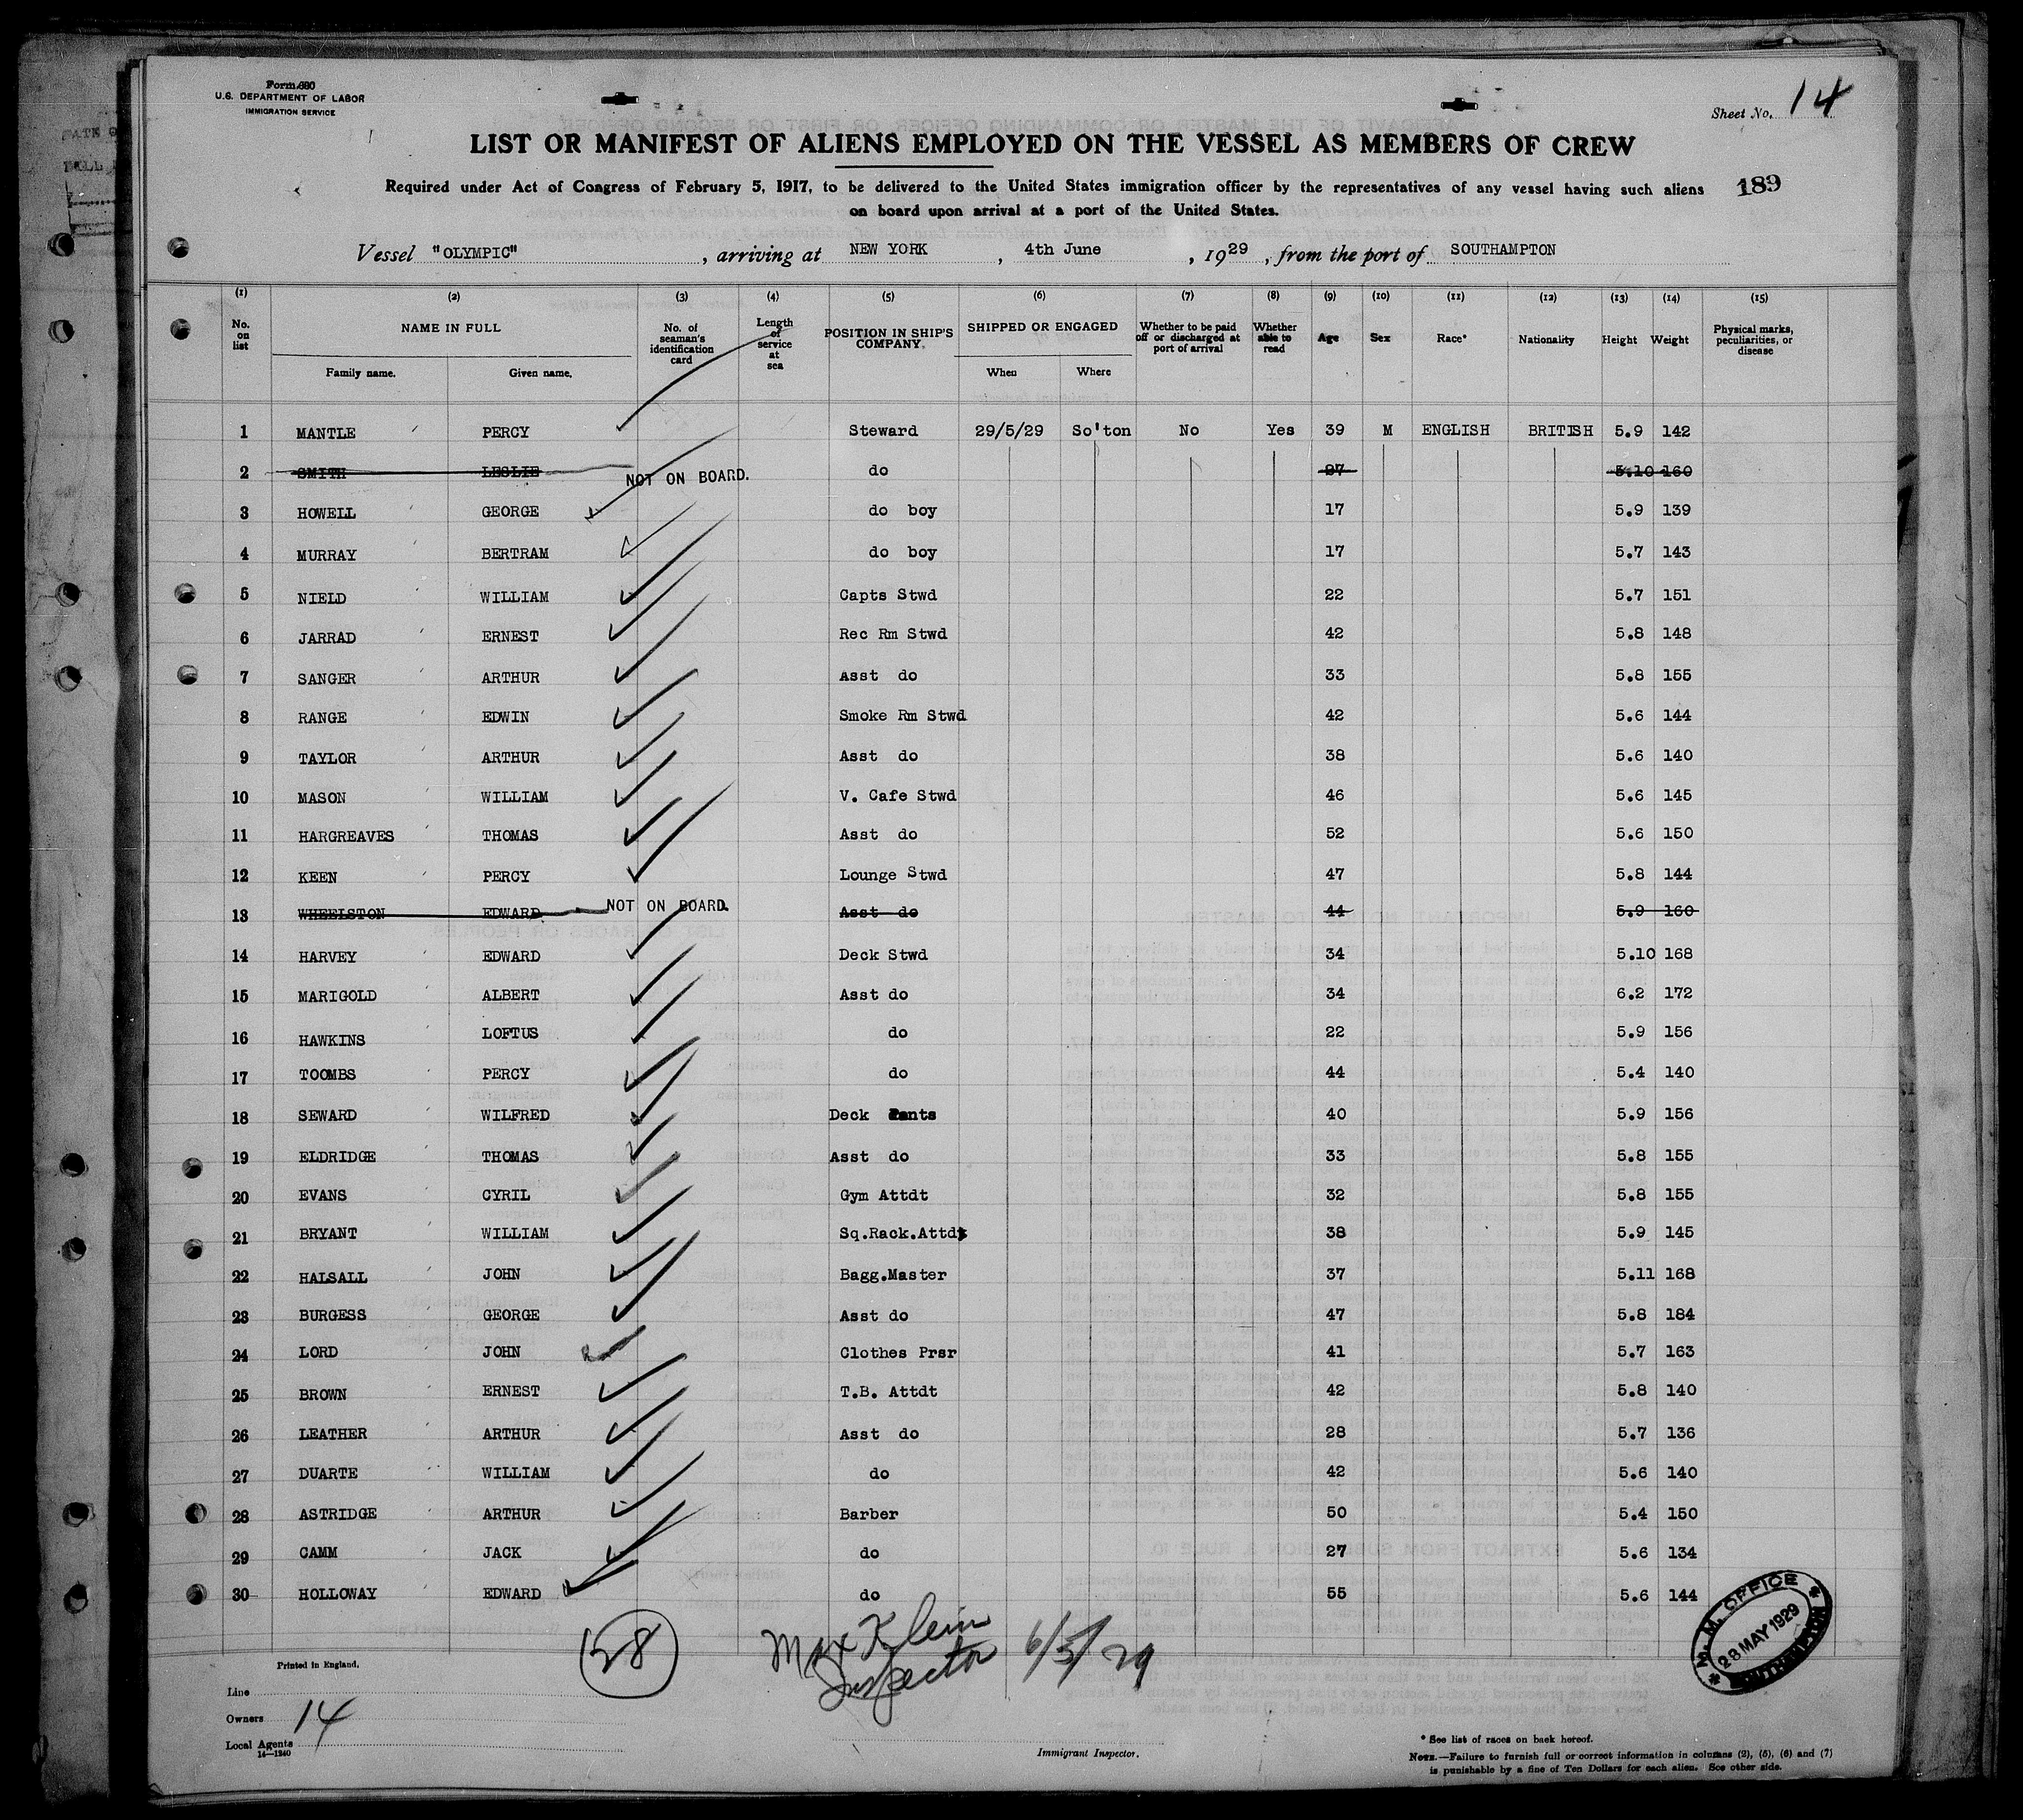 Form 680
U.S. DEPARTMENT OF LABOR
IMMIGRATION SERVICE
Sheet No. 14
LIST OR MANIFEST OF ALIENS EMPLOYED ON THE VESSEL AS MEMBERS OF CREW
Required under Act of Congress of February 5, 1917, to be delivered to the United States immigration officer by the representatives of any vessel having such aliens
on board upon arrival at a port of the United States.
189
Vessel "OLYMPIC", arriving at NEW YORK, 4th June, 1929, from the port of SOUTHAMPTON
(1) (2) (3) (4) (5) (6) (7) (8) (9) (10) (11) (12) (13) (14) (15)
No. on list NAME IN FULL No. of seaman's identification card Length of service at sea POSITION IN SHIP'S COMPANY. SHIPPED OR ENGAGED Whether to be paid off or discharged at port of arrival Whether able to read Age Sex Race* Nationality Height Weight Physical marks, peculiarities, or disease
Family name. Given name. When Where
1 MANTLE PERCY Steward 29/5/29 So'ton No Yes 39 M ENGLISH BRITISH 5.9 142
2 SMITH LESLIE NOT ON BOARD. do 27 5.10 160
3 HOWELL GEORGE do boy 17 5.9 139
4 MURRAY BERTRAM do boy 17 5.7 143
5 NIELD WILLIAM Capts Stwd 22 5.7 151
6 JARRAD ERNEST Rec Rm Stwd 42 5.8 148
7 SANGER ARTHUR Asst do 33 5.8 155
8 RANGE EDWIN Smoke Rm Stwd 42 5.6 144
9 TAYLOR ARTHUR Asst do 38 5.6 140
10 MASON WILLIAM V. Cafe Stwd 46 5.6 145
11 HARGREAVES THOMAS Asst do 52 5.6 150
12 KEEN PERCY Lounge Stwd 47 5.8 144
13 WHEELSTON EDWARD NOT ON BOARD. Asst do 44 5.9 160
14 HARVEY EDWARD Deck Stwd 34 5.10 168
15 MARIGOLD ALBERT Asst do 34 6.2 172
16 HAWKINS LOFTUS do 22 5.9 156
17 TOOMBS PERCY do 44 5.4 140
18 SEWARD WILFRED Deck Pants 40 5.9 156
19 ELDRIDGE THOMAS Asst do 33 5.8 155
20 EVANS CYRIL Gym Attdt 32 5.8 155
21 BRYANT WILLIAM Sq.Rack.Attdt 38 5.9 145
22 HALSALL JOHN Bagg.Master 37 5.11 168
23 BURGESS GEORGE Asst do 47 5.8 184
24 LORD JOHN Clothes Prsr 41 5.7 163
25 BROWN ERNEST T.B. Attdt 42 5.8 140
26 LEATHER ARTHUR Asst do 28 5.7 136
27 DUARTE WILLIAM do 42 5.6 140
28 ASTRIDGE ARTHUR Barber 50 5.4 150
29 CAMM JACK do 27 5.6 134
30 HOLLOWAY EDWARD do 55 5.6 144
28
Max Klein
Inspector
6/5/29
M. M. OFFICE
28 MAY 1929
SOUTHAMPTON
Printed in England.
Line
Owners 14
Local Agents
14—1240
Immigrant Inspector.
* See list of races on back hereof.
NOTE.—Failure to furnish full or correct information in columns (2), (5), (6) and (7)
is punishable by a fine of Ten Dollars for each alien. See other side.